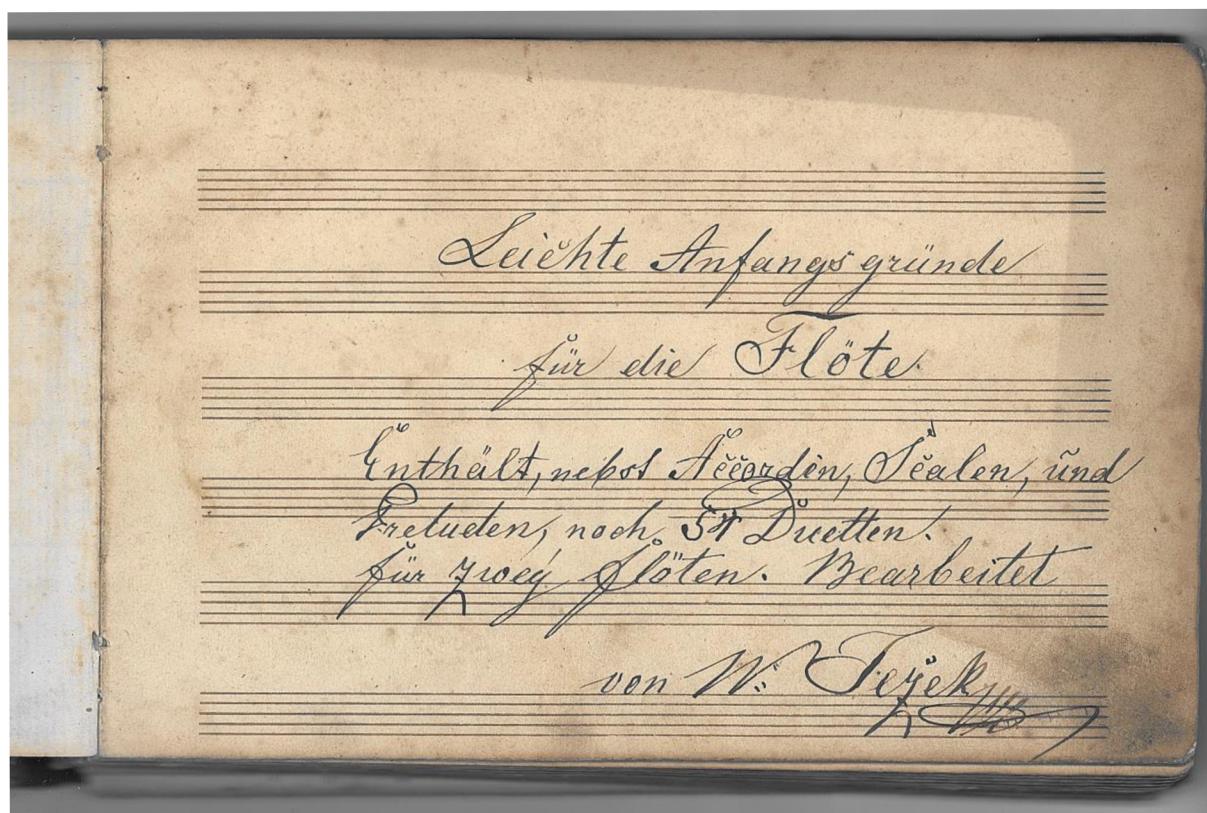 Leichte Anfangsgründe
für die Flöte.
Enthält, nebst Accorden, Scalen, und
Preluden, noch 54 Duetten.
für zweÿ Flöten. Bearbeitet
von W. Ježek